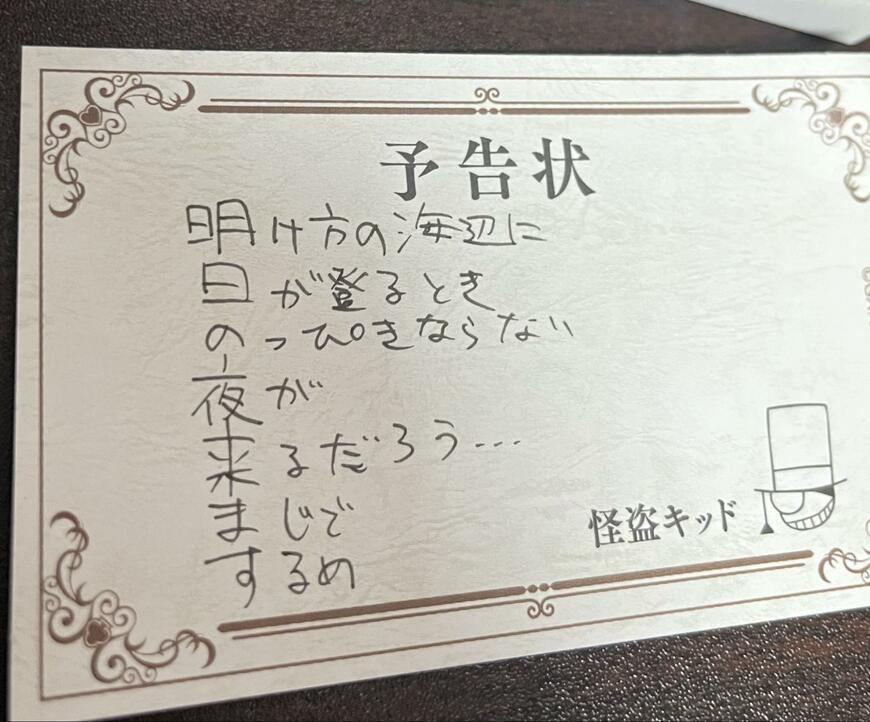 予告状
明け方の海辺に
日が登るとき
のっぴきならない
夜が
来るだろう…
まじで
するめ
怪盗キッド